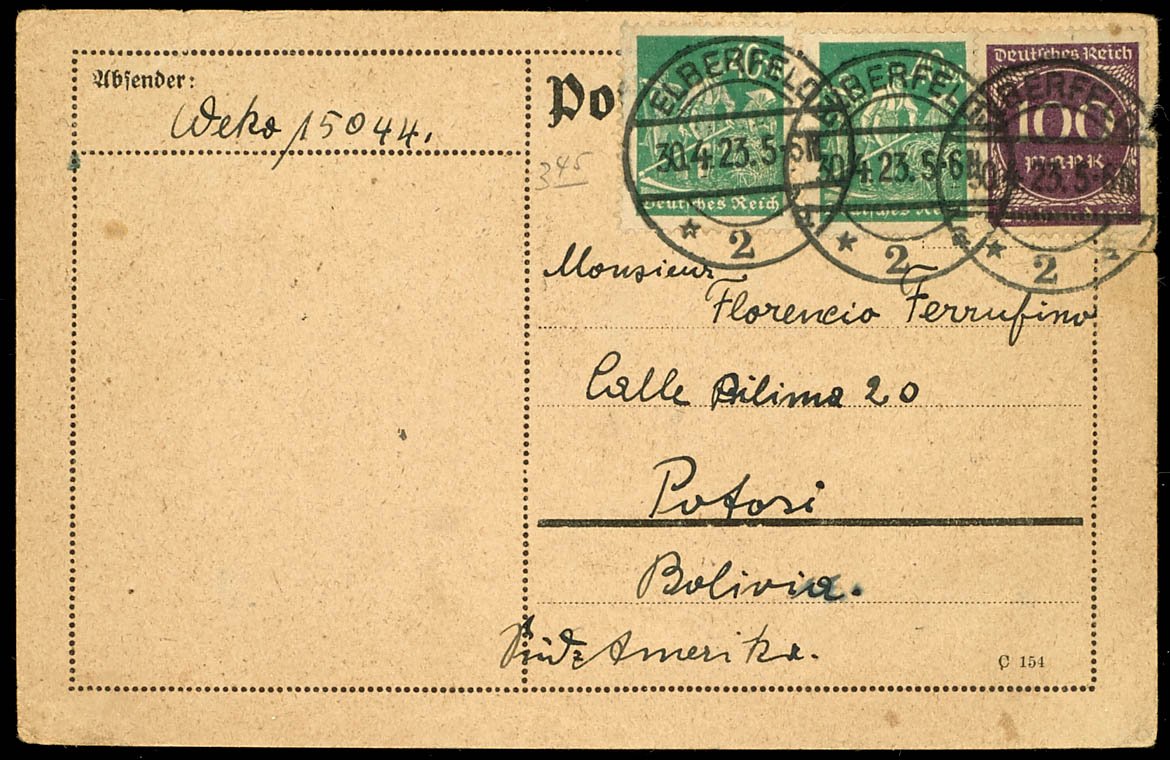 Absender:
Weka 15044.
345
Po
40
Deutsches Reich
Deutsches Reich
100
MARK
ELBERFELD
30.4.23.5-6N
* 2
ELBERFELD
30.4.23.5-6N
* 2
ELBERFELD
30.4.23.5-6N
* 2
Monsieur
Florencio Ferrufino
Calle Bilima 20
Potosi
Bolivia.
Süd-Amerika.
C 154